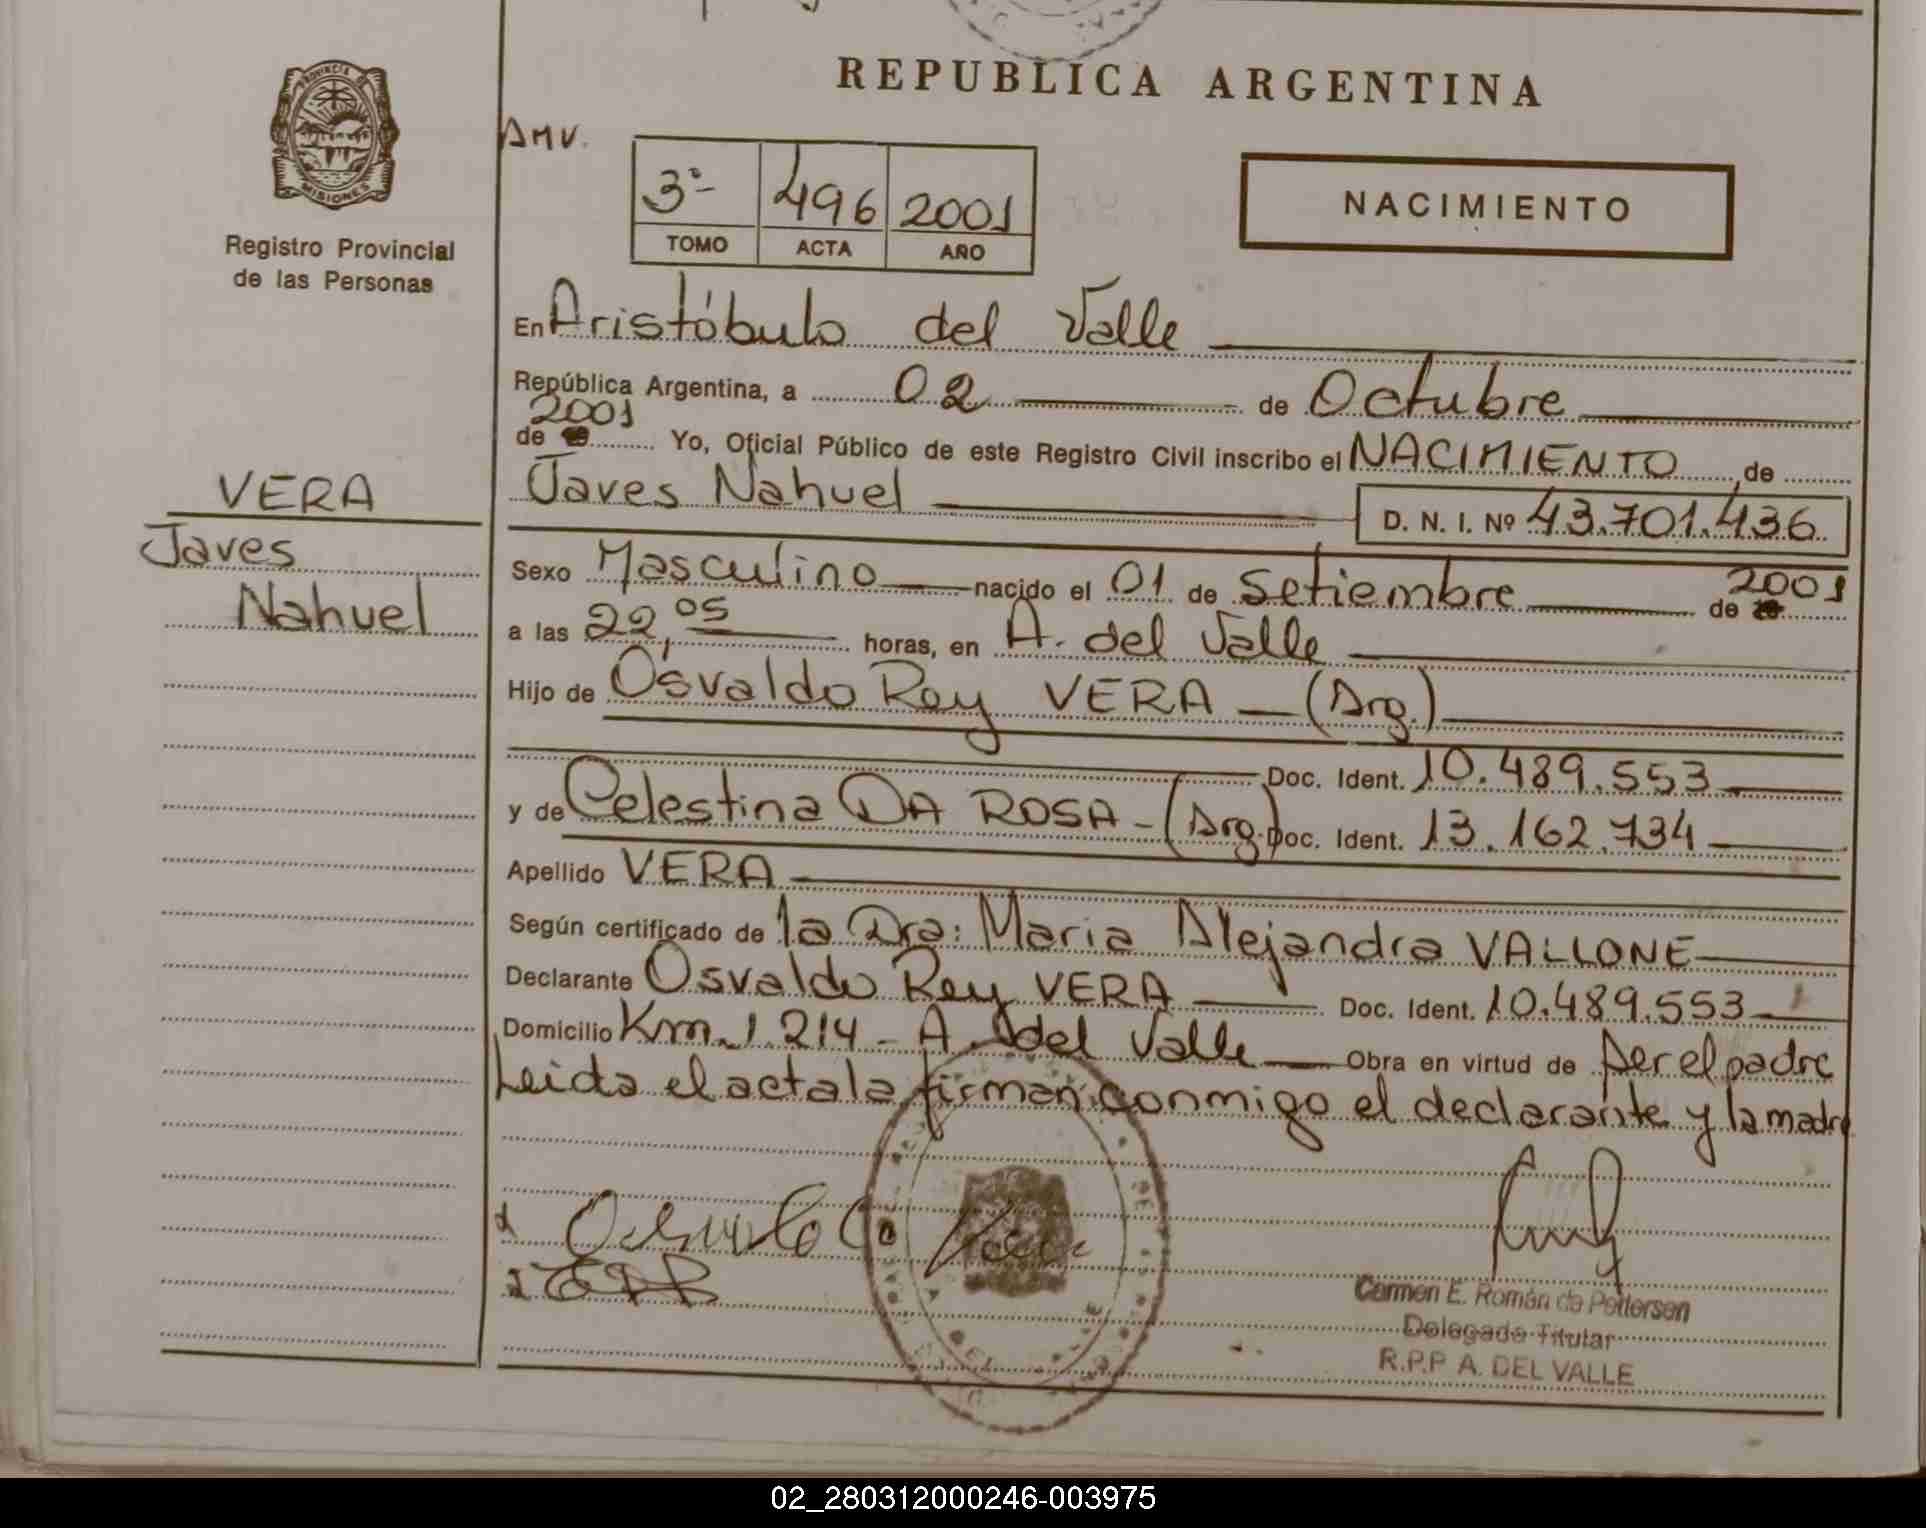 PROVINCIA DE
MISIONES
Registro Provincial
de las Personas
VERA
Javes
Nahuel
REPUBLICA ARGENTINA
AMV.
3º- 496 2001
TOMO ACTA AÑO
NACIMIENTO
En Aristóbulo del Valle
República Argentina, a 02 de Octubre
2001
de Yo, Oficial Público de este Registro Civil inscribo el NACIMIENTO, de
Javes Nahuel D. N. I. Nº 43.701.436
Sexo Masculino nacido el 01 de Setiembre de 2001
a las 22,05 horas, en A. del Valle
Hijo de Osvaldo Rey VERA — (Arg.)
Doc. Ident. 10.489.553
y de Celestina DA ROSA - (Arg.) Doc. Ident. 13.162.734
Apellido VERA
Según certificado de la Dra: Maria Alejandra VALLONE
Declarante Osvaldo Rey VERA Doc. Ident. 10.489.553
Domicilio Km. 1.214 - A. del Valle Obra en virtud de ser el padre
Leida el acta la firman conmigo el declarante y la madre
Carmen E. Román de Pettersen
Delegado Titular
R.P.P A. DEL VALLE
02_280312000246-003975